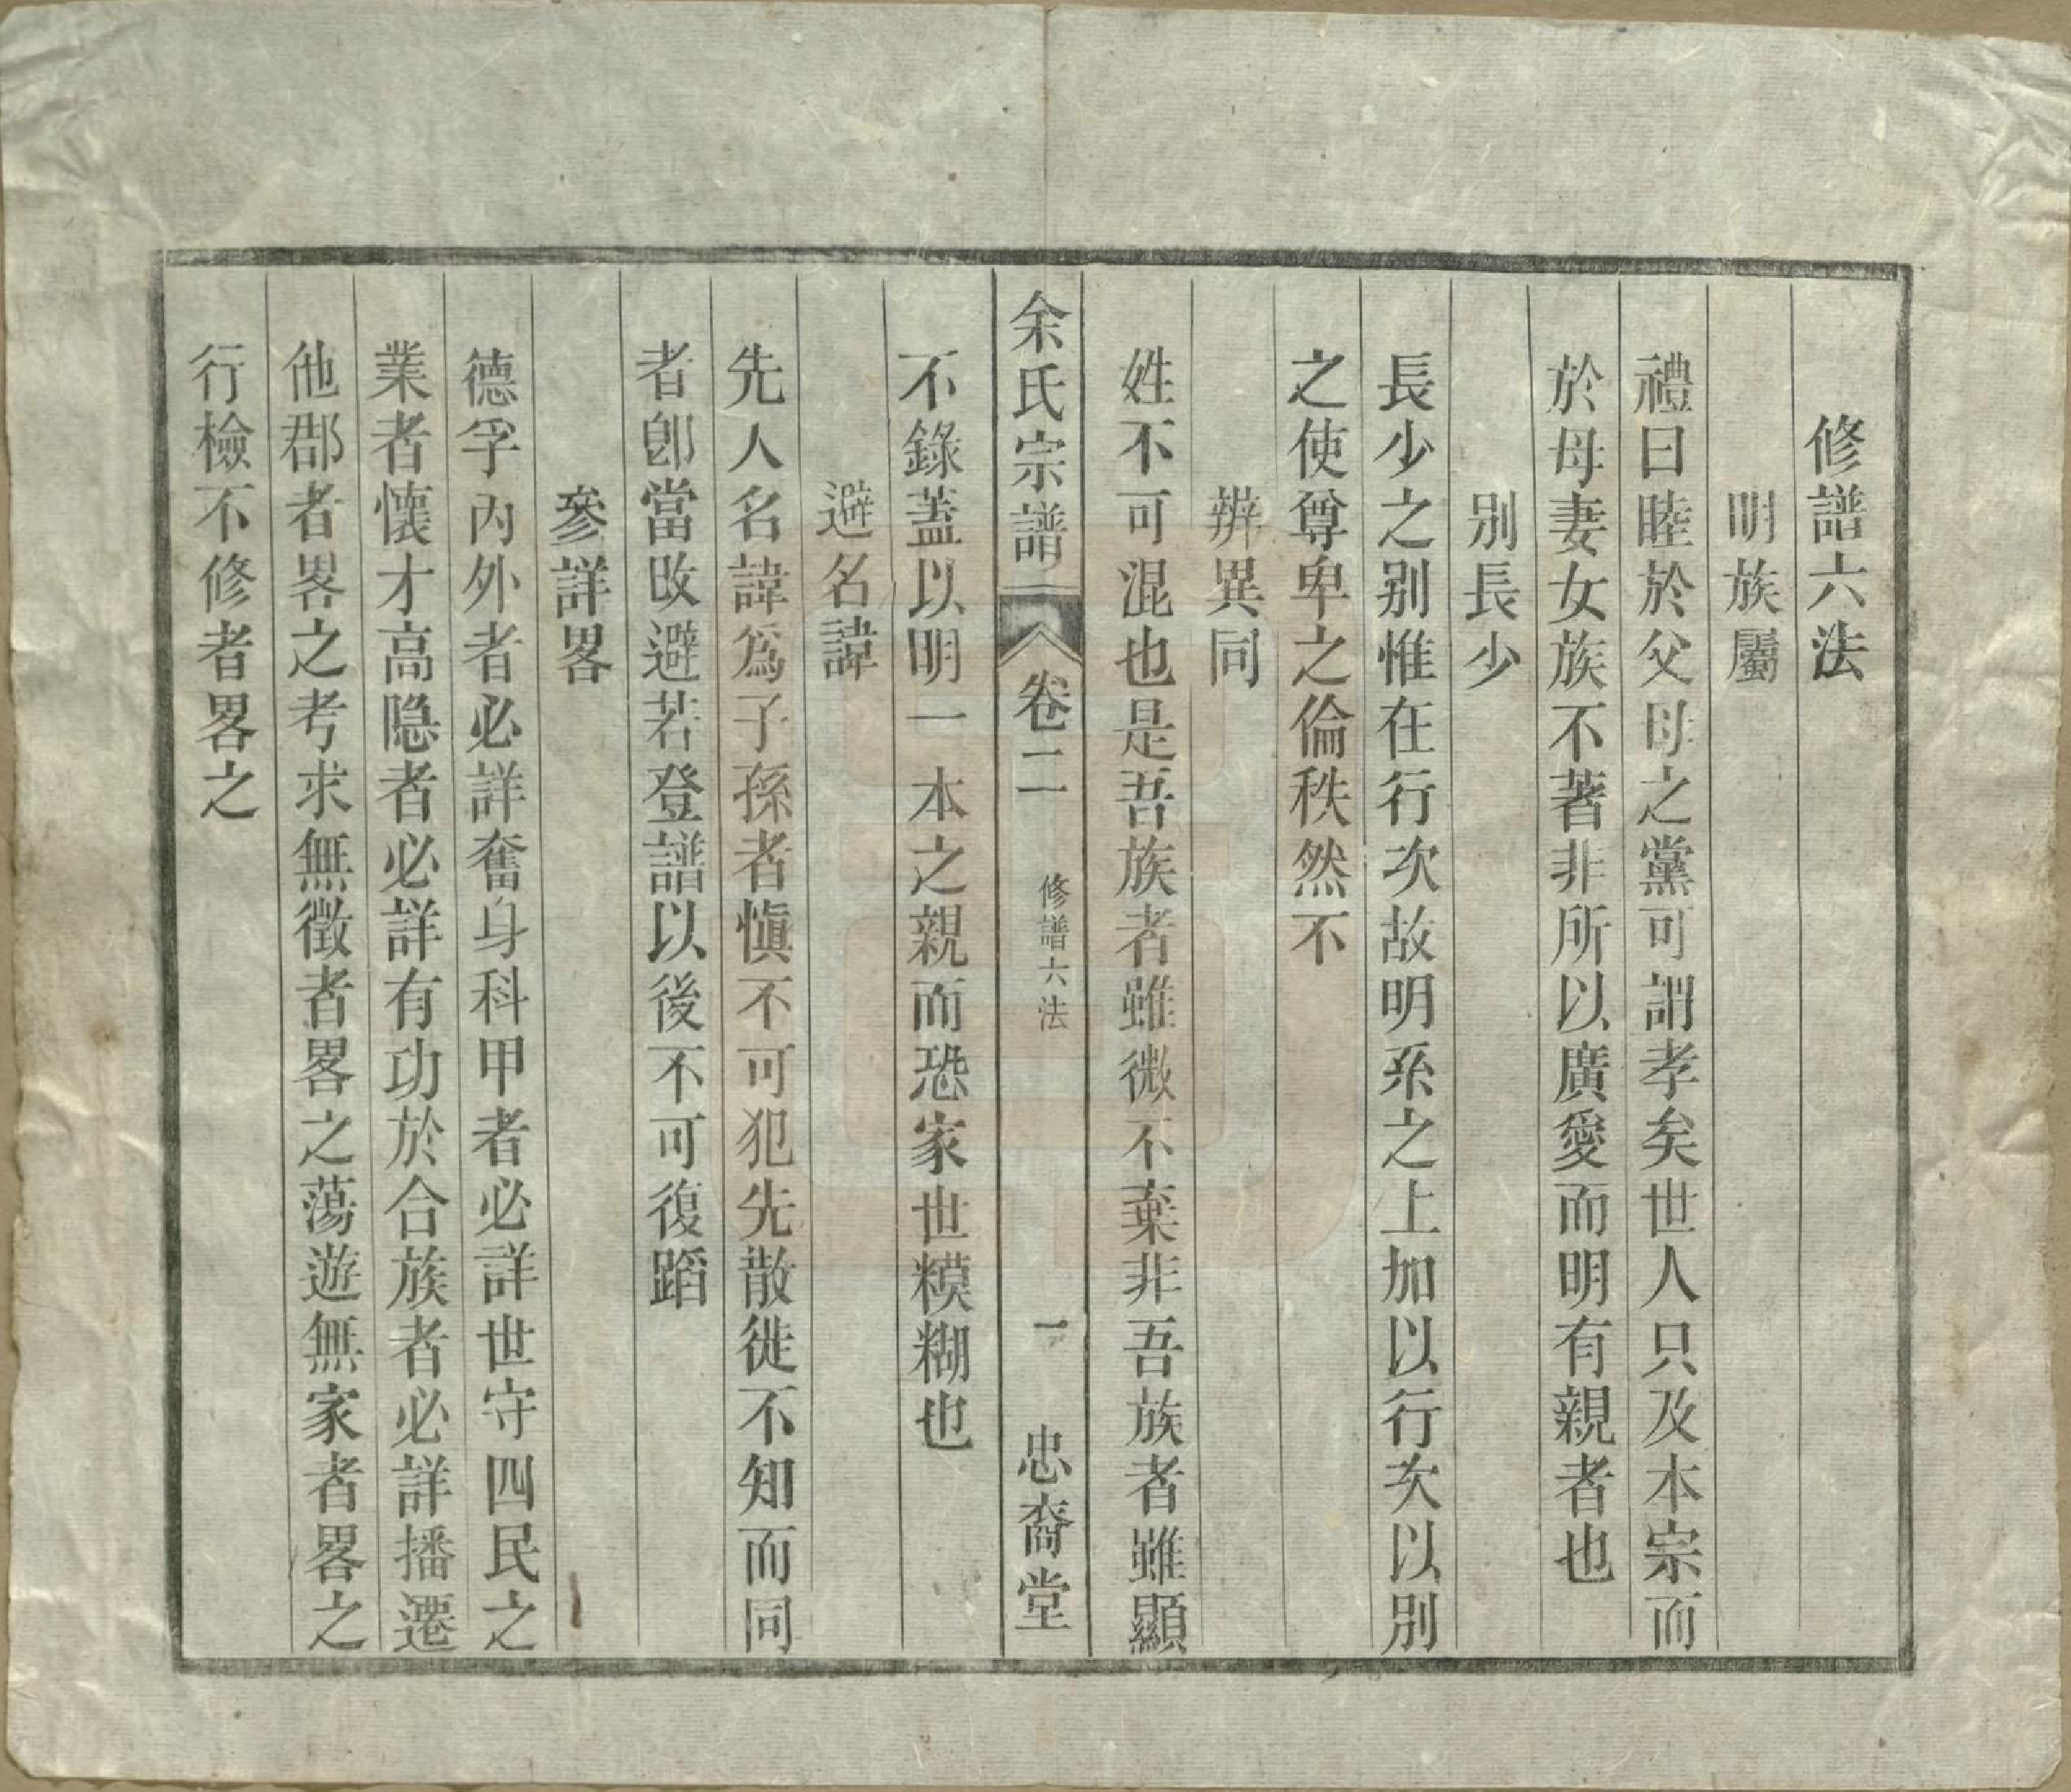 修譜六法
明族屬
禮曰睦於父母之黨可謂孝矣世人只及本宗而
於母妻女族不著非所以廣愛而明有親者也
別長少
長少之別惟在行次故明系之上加以行次以別
之使尊卑之倫秩然不
辨異同
姓不可混也是吾族者雖微不棄非吾族者雖顯
余氏宗譜 卷二 修譜六法 一 忠裔堂
不錄蓋以明一本之親而恐家世糢糊也
避名諱
先人名諱為子孫者愼不可犯先散徙不知而同
者卽當改避若登譜以後不可復蹈
參詳畧
德孚內外者必詳奮身科甲者必詳世守四民之
業者懷才高隐者必詳有功於合族者必詳播遷
他郡者畧之考求無徵者畧之蕩遊無家者畧之
行檢不修者畧之